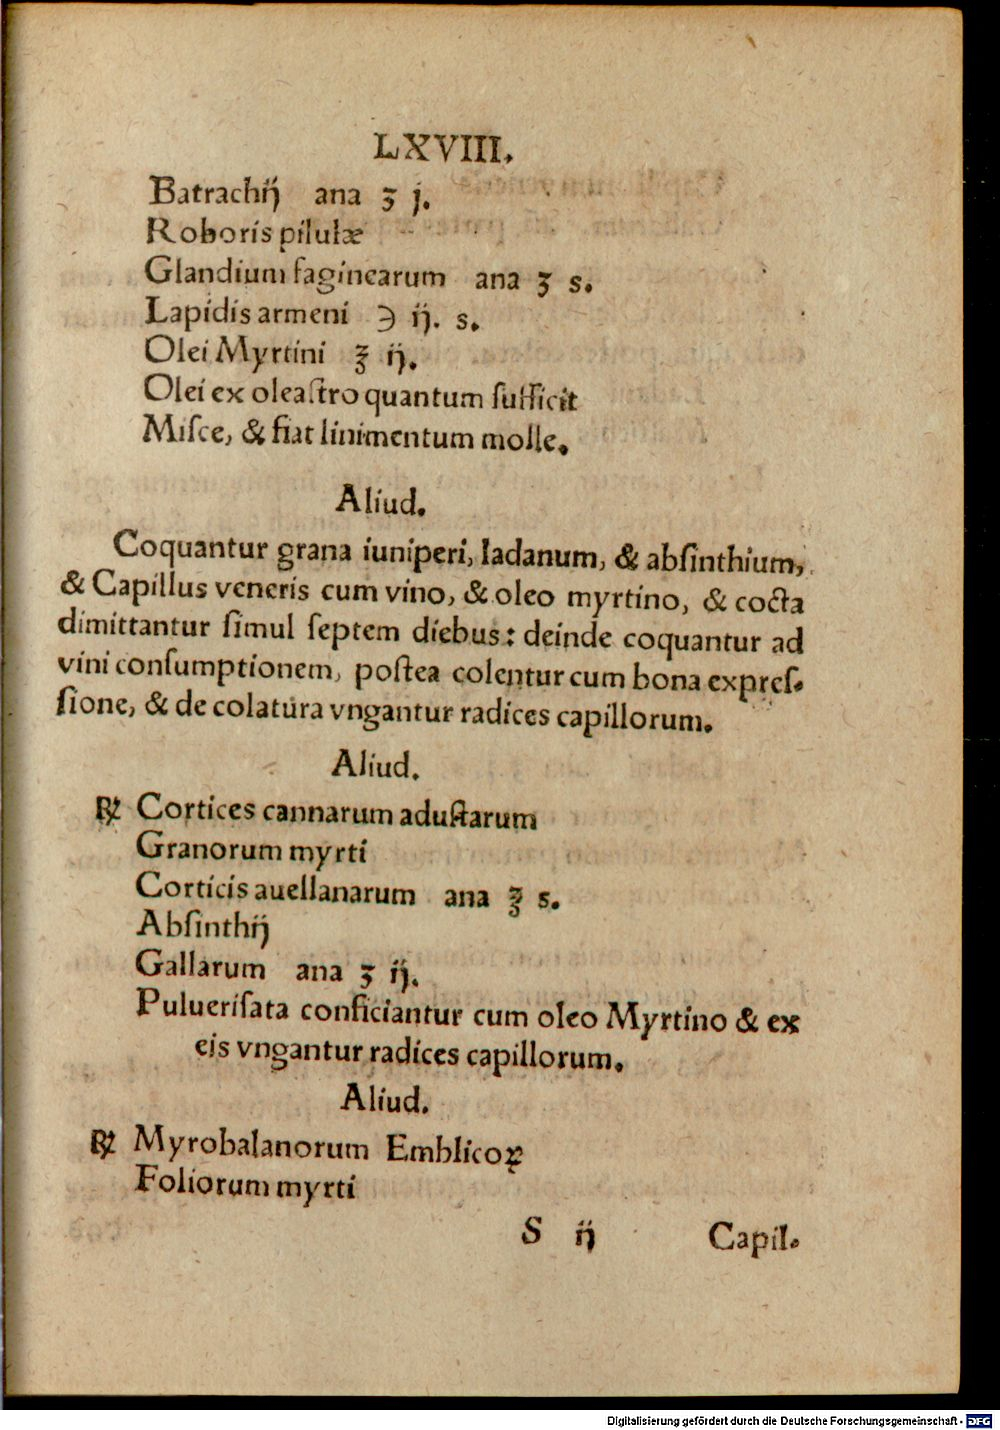 LXVIII.
Batrachij ana ʒ j.
Roboris pilulæ
Glandium faginearum ana ʒ s.
Lapidis armeni ℈ ij. s.
Olei Myrtini ℥ ij.
Olei ex oleaſtro quantum ſufficit
Miſce, & fiat linimentum molle.
Aliud.
Coquantur grana iuniperi, ladanum, & abſinthium,
& Capillus veneris cum vino, & oleo myrtino, & cocta
dimittantur ſimul ſeptem diebus: deinde coquantur ad
vini conſumptionem, poſtea colentur cum bona expreſ-
ſione, & de colatura vngantur radices capillorum.
Aliud.
℞ Cortices cannarum aduſtarum
Granorum myrti
Corticis auellanarum ana ℥ s.
Abſinthij
Gallarum ana ʒ ij.
Pulueriſata conficiantur cum oleo Myrtino & ex
eis vngantur radices capillorum.
Aliud.
℞ Myrobalanorum Emblicoꝝ
Foliorum myrti
S ij Capil-
Digitalisierung gefördert durch die Deutsche Forschungsgemeinschaft - DFG